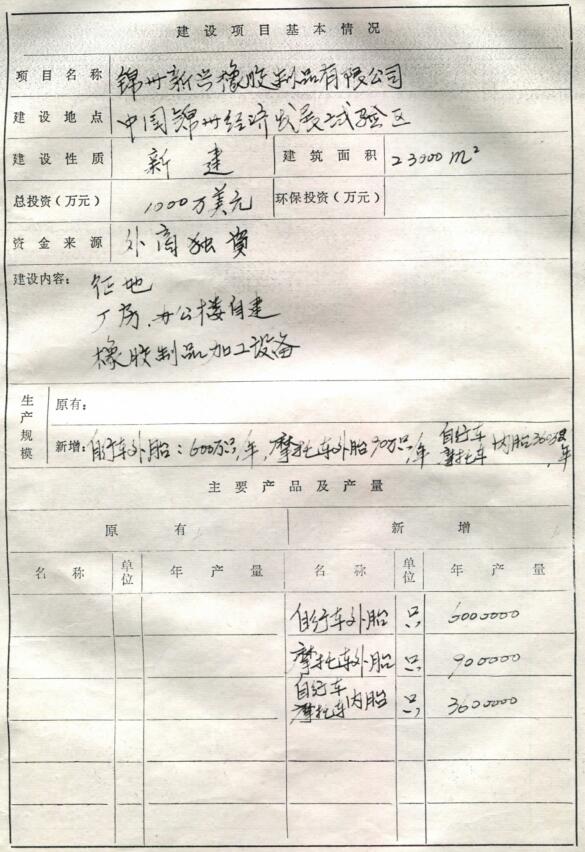 建设项目基本情况
项目名称 锦州新兴橡胶制品有限公司
建设地点 中国锦州经济发展试验区
建设性质 新建 建筑面积 23000m²
总投资(万元) 1000万美元 环保投资(万元)
资金来源 外商独資
建设内容: 征地
厂房、办公楼自建
橡胶制品加工设备
生产规模
原有:
新增: 自行车外胎:600万只/年,摩托车外胎90万只/年,自行车摩托车内胎360万只/年
主要产品及产量
原有 新增
名称 单位 年产量 名称 单位 年产量
自行车外胎 只 6000000
摩托车外胎 只 900000
自行车
摩托车内胎 只 3600000